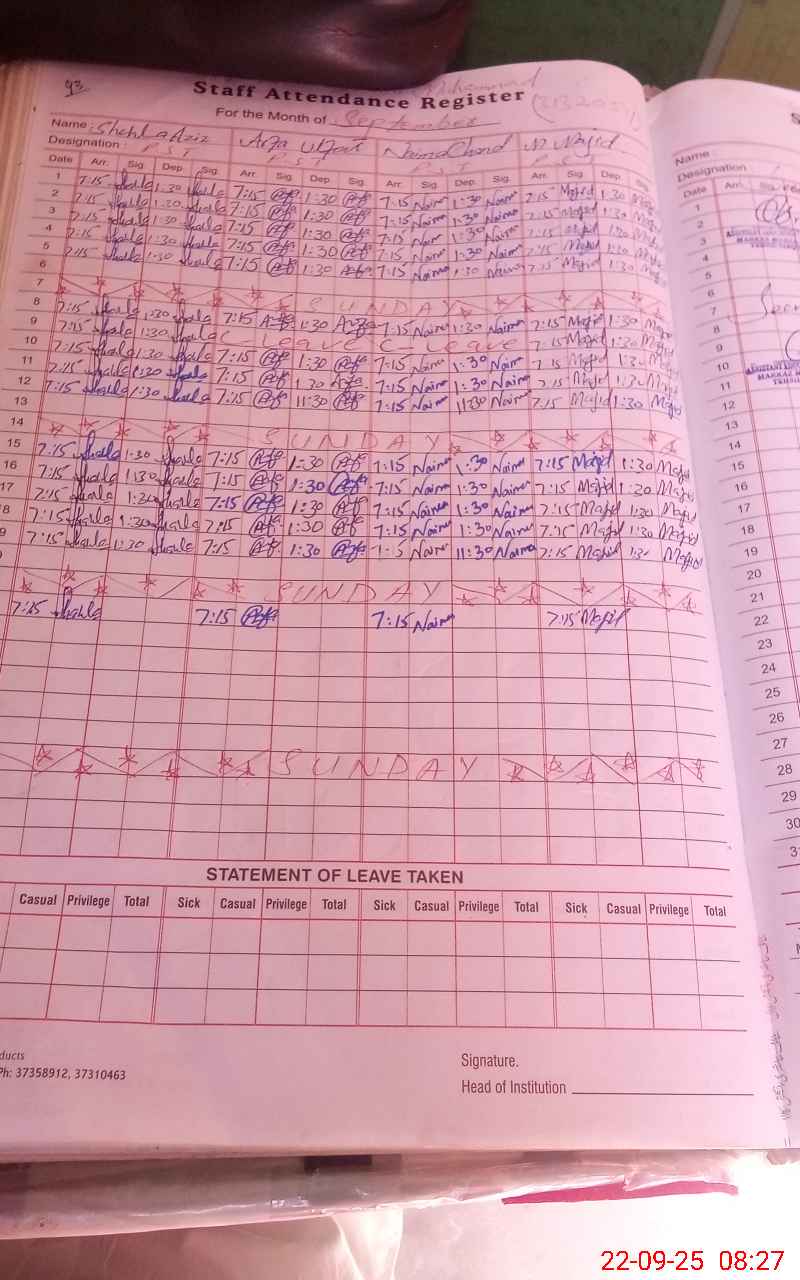 93
Staff Attendance Register
For the Month of September
Name: Shehla Aziz Arfa Ulfat Naima Chand M Majid
Name
Designation: PST PST PST PST
Designation
Date Arr. Sig. Dep. Sig. Arr. Sig. Dep. Sig. Arr. Sig. Dep. Sig. Arr. Sig. Dep. Sig.
Date Arr. Sig.
1 7:15 Shaila 1:30 Shaila 7:15 Arfa 1:30 Arfa 7:15 Naima 1:30 Naima 7:15 Majid 1:30 Majid
2 7:15 Shaila 1:30 Shaila 7:15 Arfa 1:30 Arfa 7:15 Naima 1:30 Naima 7:15 Majid 1:30 Majid
3 7:15 Shaila 1:30 Shaila 7:15 Arfa 1:30 Arfa 7:15 Naima 1:30 Naima 7:15 Majid 1:30 Majid
4 7:15 Shaila 1:30 Shaila 7:15 Arfa 1:30 Arfa 7:15 Naima 1:30 Naima 7:15 Majid 1:30 Majid
5 7:15 Shaila 1:30 Shaila 7:15 Arfa 1:30 Arfa 7:15 Naima 1:30 Naima 7:15 Majid 1:30 Majid
6
7 SUNDAY
8 7:15 Shaila 1:30 Shaila 7:15 Arfa 1:30 Arfa 7:15 Naima 1:30 Naima 7:15 Majid 1:30 Majid
9 7:15 Shaila 1:30 Shaila C-Leave C-Leave 7:15 Majid 1:30 Majid
10 7:15 Shaila 1:30 Shaila 7:15 Arfa 1:30 Arfa 7:15 Naima 1:30 Naima 7:15 Majid 1:30 Majid
11 7:15 Shaila 1:30 Shaila 7:15 Arfa 1:30 Arfa 7:15 Naima 1:30 Naima 7:15 Majid 1:30 Majid
12 7:15 Shaila 1:30 Shaila 7:15 Arfa 11:30 Arfa 7:15 Naima 11:30 Naima 7:15 Majid 1:30 Majid
13
14 SUNDAY
15 7:15 Shaila 1:30 Shaila 7:15 Arfa 1:30 Arfa 7:15 Naima 1:30 Naima 7:15 Majid 1:30 Majid
16 7:15 Shaila 1:30 Shaila 7:15 Arfa 1:30 Arfa 7:15 Naima 1:30 Naima 7:15 Majid 1:30 Majid
17 7:15 Shaila 1:30 Shaila 7:15 Arfa 1:30 Arfa 7:15 Naima 1:30 Naima 7:15 Majid 1:30 Majid
8 7:15 Shaila 1:30 Shaila 7:15 Arfa 1:30 Arfa 7:15 Naima 1:30 Naima 7:15 Majid 1:30 Majid
9 7:15 Shaila 1:30 Shaila 7:15 Arfa 1:30 Arfa 1:15 Naima 11:30 Naima 7:15 Majid 1:30 Majid
SUNDAY
7:15 Shaila 7:15 Arfa 7:15 Naima 7:15 Majid
SUNDAY
STATEMENT OF LEAVE TAKEN
Casual Privilege Total Sick Casual Privilege Total Sick Casual Privilege Total Sick Casual Privilege Total
ducts
Ph: 37358912, 37310463
Signature.
Head of Institution
1
2
3
4
5
6
7
8
9
10
11
12
13
14
15
16
17
18
19
20
21
22
23
24
25
26
27
28
29
30
3
22-09-25 08:27